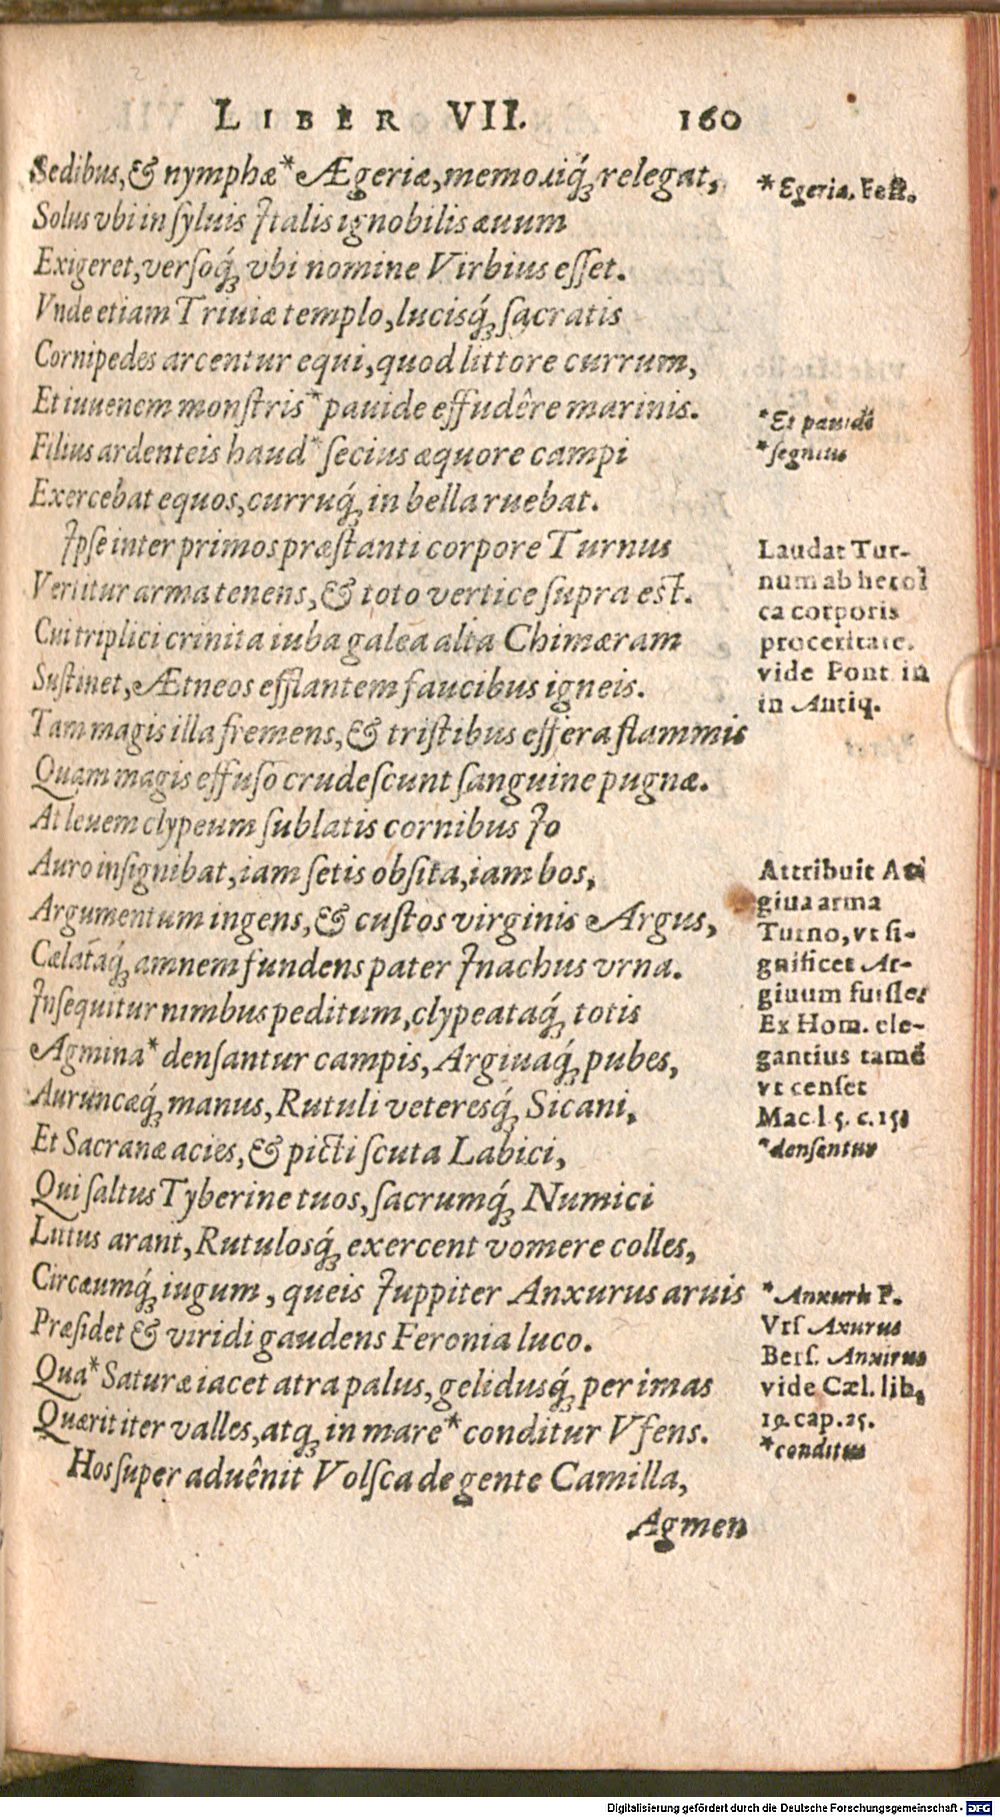 LIBER VII. 160
Sedibus, & nymphæ* Ægeriæ, memoriq́ꝫ relegat,
Solus vbi in ſyluis Italis ignobilis æuum
Exigeret, verſoq́ꝫ vbi nomine Virbius eſſet.
Vnde etiam Triuiæ templo, lucisq́ꝫ ſacratis
Cornipedes arcentur equi, quod littore currum,
Et iuuenem monſtris* pauide effudêre marinis.
Filius ardenteis haud* ſecius æquore campi
Exercebat equos, curruq́ꝫ in bella ruebat.
Ipſe inter primos præſtanti corpore Turnus
Vertitur arma tenens, & toto vertice ſupra eſt.
Cui triplici crinita iuba galea alta Chimæram
Suſtinet, Ætneos efflantem faucibus igneis.
Tam magis illa fremens, & triſtibus effera flammis
Quam magis effuſo crudeſcunt ſanguine pugnæ.
At leuem clypeum ſublatis cornibus Io
Auro inſignibat, iam ſetis obſita, iam bos,
Argumentum ingens, & cuſtos virginis Argus,
Cælataq́ꝫ amnem fundens pater Inachus vrna.
Inſequitur nimbus peditum, clypeataq́ꝫ totis
Agmina* denſantur campis, Argiuaq́ꝫ pubes,
Auruncæq́ꝫ manus, Rutuli veteresq́ꝫ Sicani,
Et Sacranæ acies, & picti ſcuta Labici,
Qui ſaltus Tyberine tuos, ſacrumq́ꝫ Numici
Lutus arant, Rutulosq́ꝫ exercent vomere colles,
Circæumq́ꝫ iugum, queis Iuppiter Anxurus aruis
Præſidet & viridi gaudens Feronia luco.
Qua* Saturæ iacet atra palus, gelidusq́ꝫ per imas
Quærit iter valles, atqꝫ in mare* conditur Vfens.
Hos ſuper aduênit Volſca de gente Camilla,
Agmen
* Egeria. Feſt.
* Et pauidū
* ſegnius
Laudat Tur-
num ab heroi
ca corporis
proceritate.
vide Pont in
in Antiq.
Attribuit Ar
giua arma
Turno, vt ſi-
gnificet Ar-
giuum fuiſſe:
Ex Hom. ele-
gantius tamē
vt cenſet
Mac. l 5. c. 15
* denſentur
* Anxuris P.
Vrſ Axurus
Berſ. Anxirus
vide Cæl. lib,
19. cap. 25.
* conditus
Digitalisierung gefördert durch die Deutsche Forschungsgemeinschaft - DFG